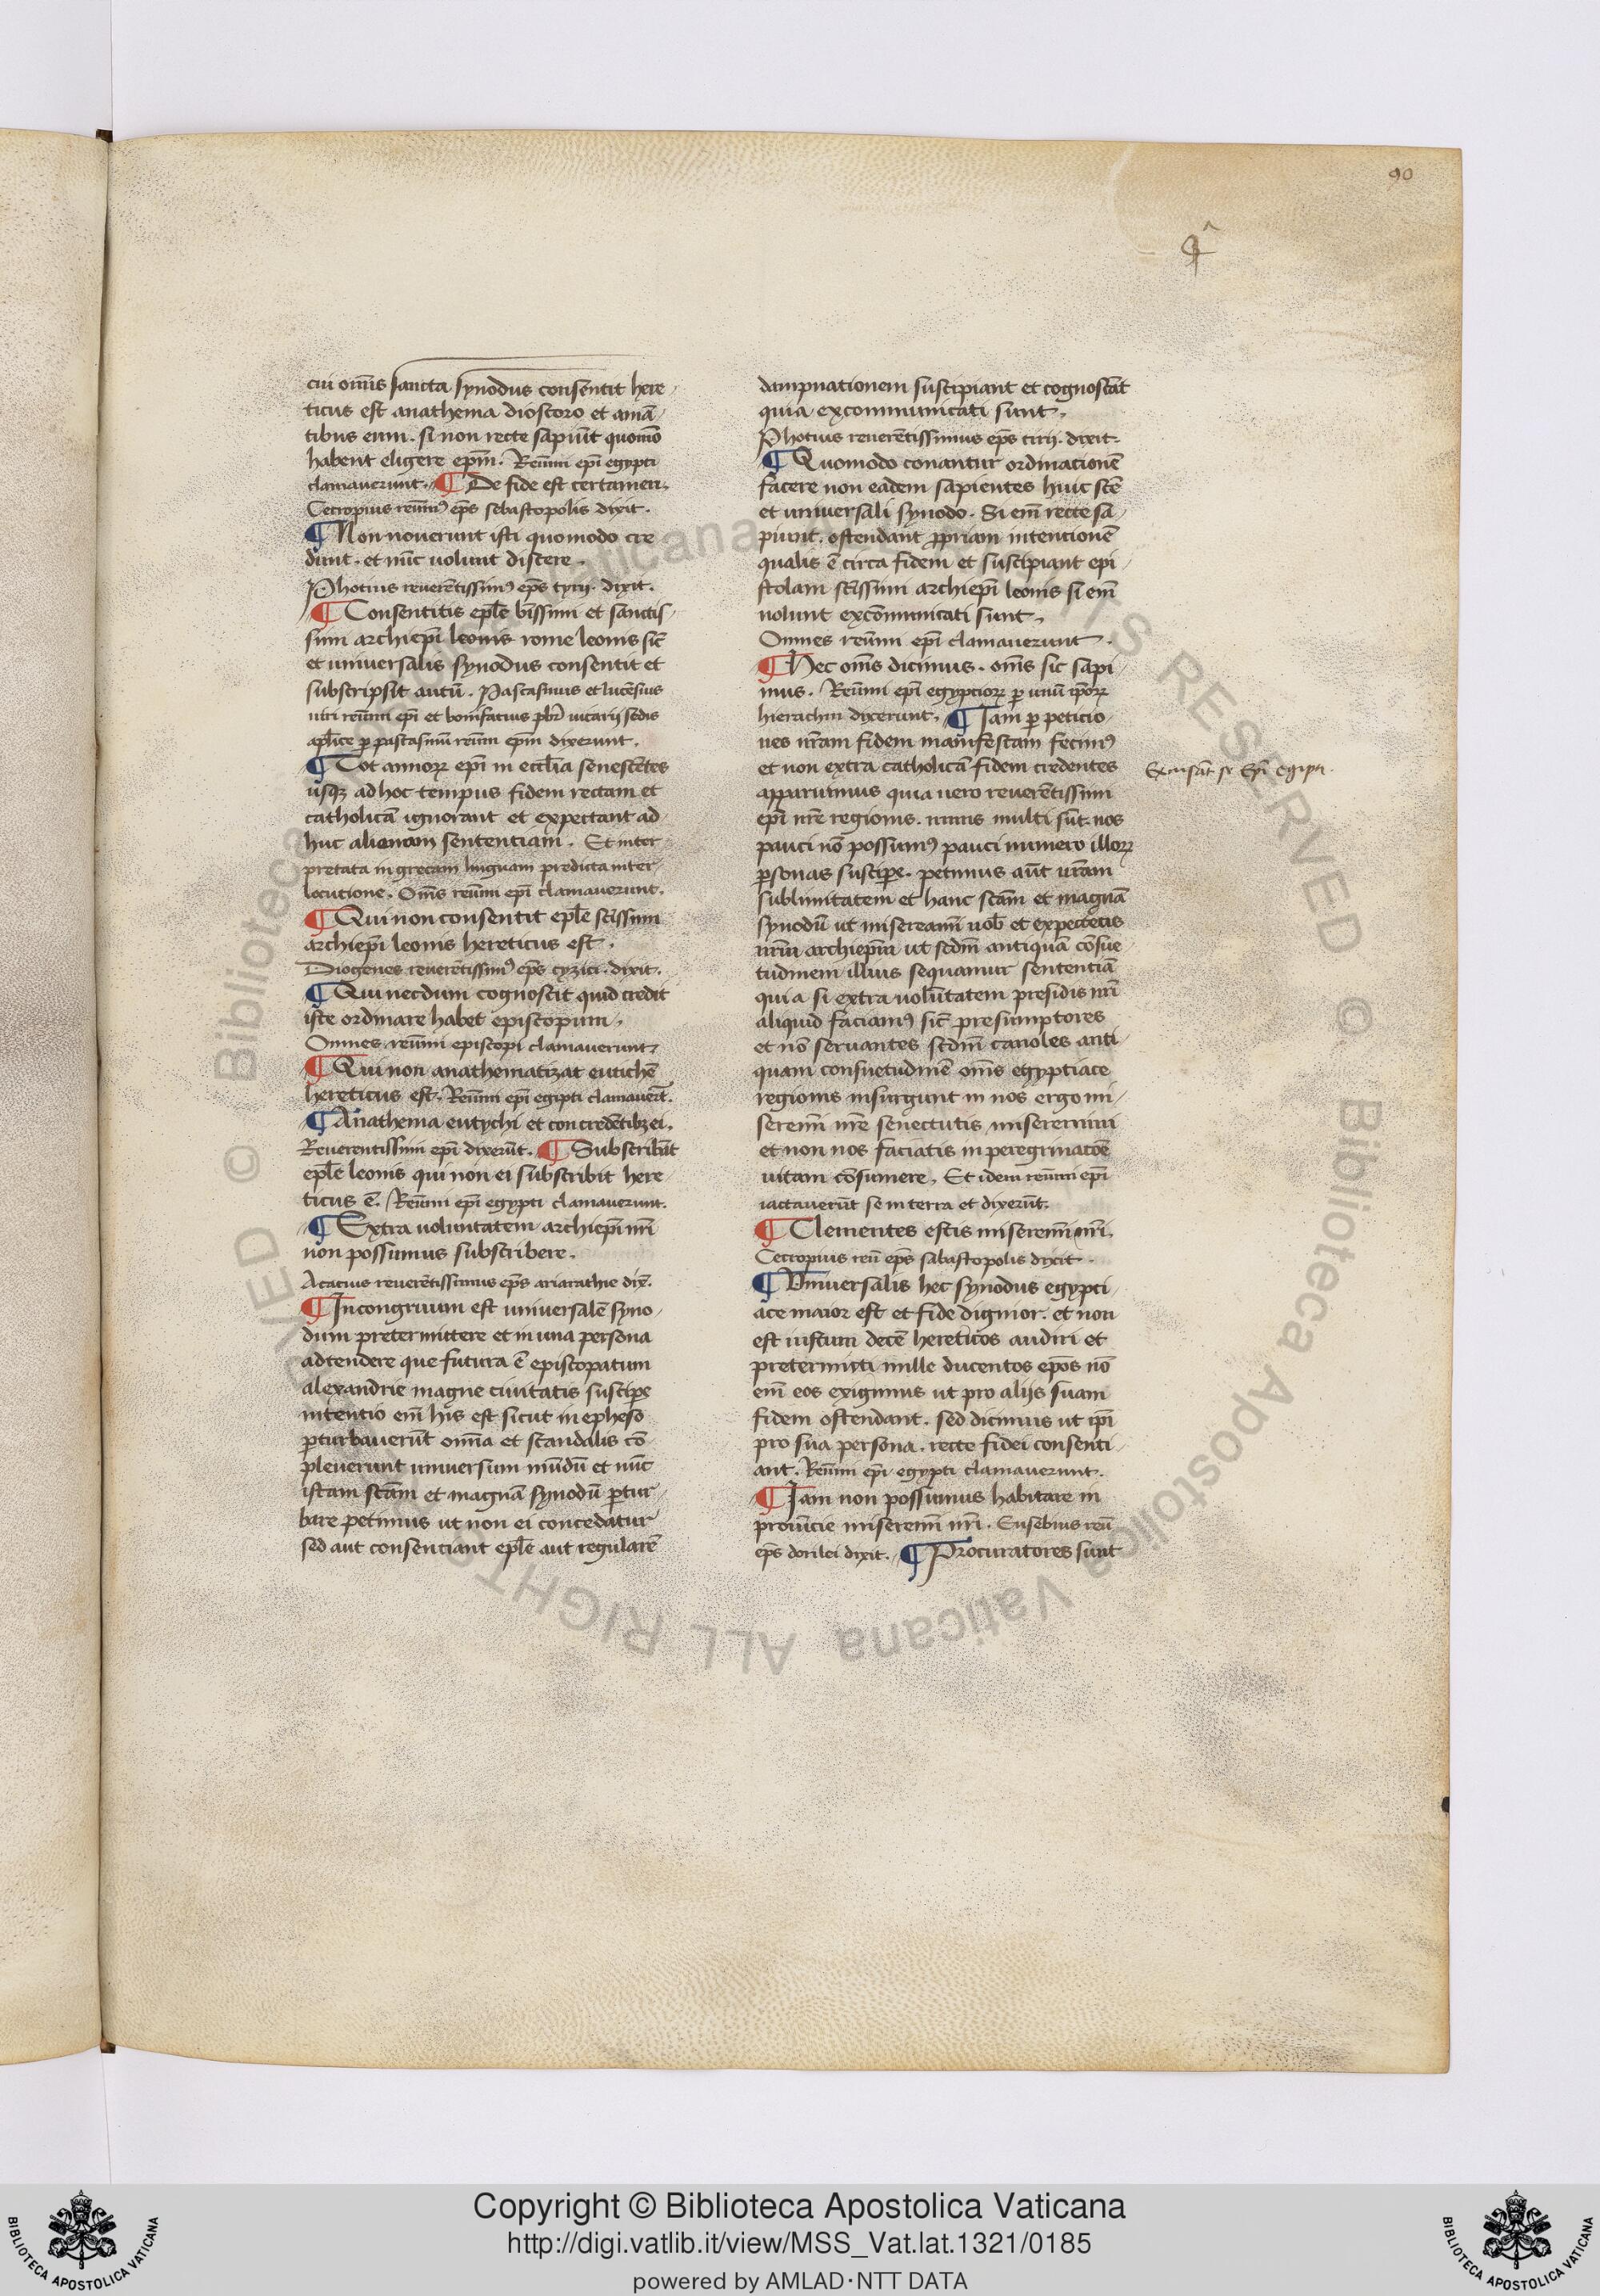 90
cui om̄s sancta synodus consentit here
ticus est anathema dioscoro et amā
tibus eum. si non recte sapiūt quomō
habent eligere epm̄. Reūmi epī egypti
clamauerunt. ¶ De fide est certamen.
Cecropius reūmꝰ ep̄s sebastopolis dixit.
¶ Non nouerunt isti quomodo cre
dunt. et nūc uolunt discere.
Photius reuerētissimꝰ ep̄s tyrij. dixit.
¶ Consentitis epl̄e bīssimi et sanctis
simi archiepī leonis rome leonis sic̄
et uniuersalis synodus consentit et
subscripsit autū. Pascasinus et lucēsius
uiri reūmi epī et bonifacius pbr̄ uicarij sedis
apl̄ice ꝑ pascasinū reūm epm̄ dixerunt.
¶ Tot annoꝝ epī in eccl̄ia senescētes
usqꝫ ad hoc tempus fidem rectam et
catholicā ignorant et expectant ad
huc alienam sententiam. Et inter
pretata in grecam linguam predicta inter
locutione. Om̄s reūmi epī clamauerunt.
¶ Qui non consentit epl̄e sc̄issimi
archiepī leonis hereticus est.
Diogenes reuerētissimꝰ ep̄s cyzici. dixit.
¶ Qui necdum cognoscit quid credit
iste ordinare habet episcopum.
Omnes reūmi episcopi clamauerunt
¶ Qui non anathematizat eutichē
hereticus est. Reūmi epī egipti clamauer̄t.
¶ Anathema eutychi et con credētibꝫ ei.
Reuerentissimi epī dixerūt. ¶ Subscribāt
epl̄e leonis qui non ei subscribit here
ticus ē. Reūmi epī egypti clamauerunt.
¶ Extra uoluntatem archiepī nr̄i
non possumus subscribere.
Acacius reuerētissimus ep̄s ariarathie dix̄.
¶ Incongruum est uniuersalē syno
dum pretermittere et in una persona
adtendere que futura ē episcopatum
alexandrie magne ciuitatis suscipe
intentio em̄ his est sicut in epheso
ꝑturbauerūt omīa et scandalis cō
pleuerunt uniuersum mūdū et nūc
istam sc̄am et magnā synodū ꝑtur
bare petimus ut non ei concedatur
sed aut consenciant epl̄e aut regularē
dampnationem suscipiant et cognoscāt
quia excommunicati sunt.
Photius reuerētissimus ep̄s tirij. dixit.
¶ Quomodo conantur ordinationē
facere non eadem sapientes huic sc̄e
et uniuersali synodo. Si em̄ recte sa
piunt. ostendant ꝓpriam intentionē
qualis ē circa fidem et suscipiant epi
stolam sc̄issimi archiepī leonis si em̄
nolunt excōmunicati sunt.
Omnes reūmi epī clamauerunt.
¶ Hec om̄s dicimus. om̄s sic sapi
mus. Reūmi epī egyptioꝝ ꝑ unū ip̄oꝝ
hierachin dixerunt. ¶ Iam ꝑ peticio
nes nr̄am fidem manifestam fecimꝰ
et non extra catholicā fidem credentes
apparuimus quia uero reuerētissimi
epī nr̄e regionis. nimis multi sūt. nos
pauci nō possumꝰ pauci numero illoꝝ
ꝑsonas suscipe. petimus aūt ur̄am
sublimitatem et hanc sc̄am et magnā
synodū ut misereamī nob̄ et expectetis
nr̄m archiepm̄ ut scd̄m antiquā cōsue
tudinem illius sequamur sententiā
quia si extra uolūtatem presidis nr̄i
aliquid faciamꝰ sic̄ presumptores
et nō seruantes scd̄m canoles anti
quam consuetudinē om̄s egyptiace
regionis insurgunt in nos ergo mi
seremī nr̄e senectutis miseremini
et non nos faciatis in peregrinacōe
uitam cōsumere. Et idem reūmi epī
iactauerūt se in terra et dixerūt.
¶ Clementes estis miseremī nr̄i.
Cecropius reū ep̄s sabastopolis dixit.
¶ Vniuersalis hec synodus egypti
ace maior est et fide dignior. et non
est iustum decē hereticos audiri et
pretermitti mille ducentos epōs nō
em̄ eos exigimus ut pro alijs suam
fidem ostendant. sed dicimus ut ip̄i
pro sua persona. recte fidei consenti
ant. Reūmi epī egypti clamauerunt.
¶ Iam non possumus habitare in
prouīcie miseremī nr̄i. Eusebius reū
ep̄s dorilei dixit. ¶ Procuratores sunt
Excusāt se Epī Egipti.
© Biblioteca Apostolica Vaticana ALL RIGHTS RESERVED
Copyright © Biblioteca Apostolica Vaticana
http://digi.vatlib.it/view/MSS_Vat.lat.1321/0185
powered by AMLAD·NTT DATA
BIBLIOTECA APOSTOLICA VATICANA
BIBLIOTECA APOSTOLICA VATICANA